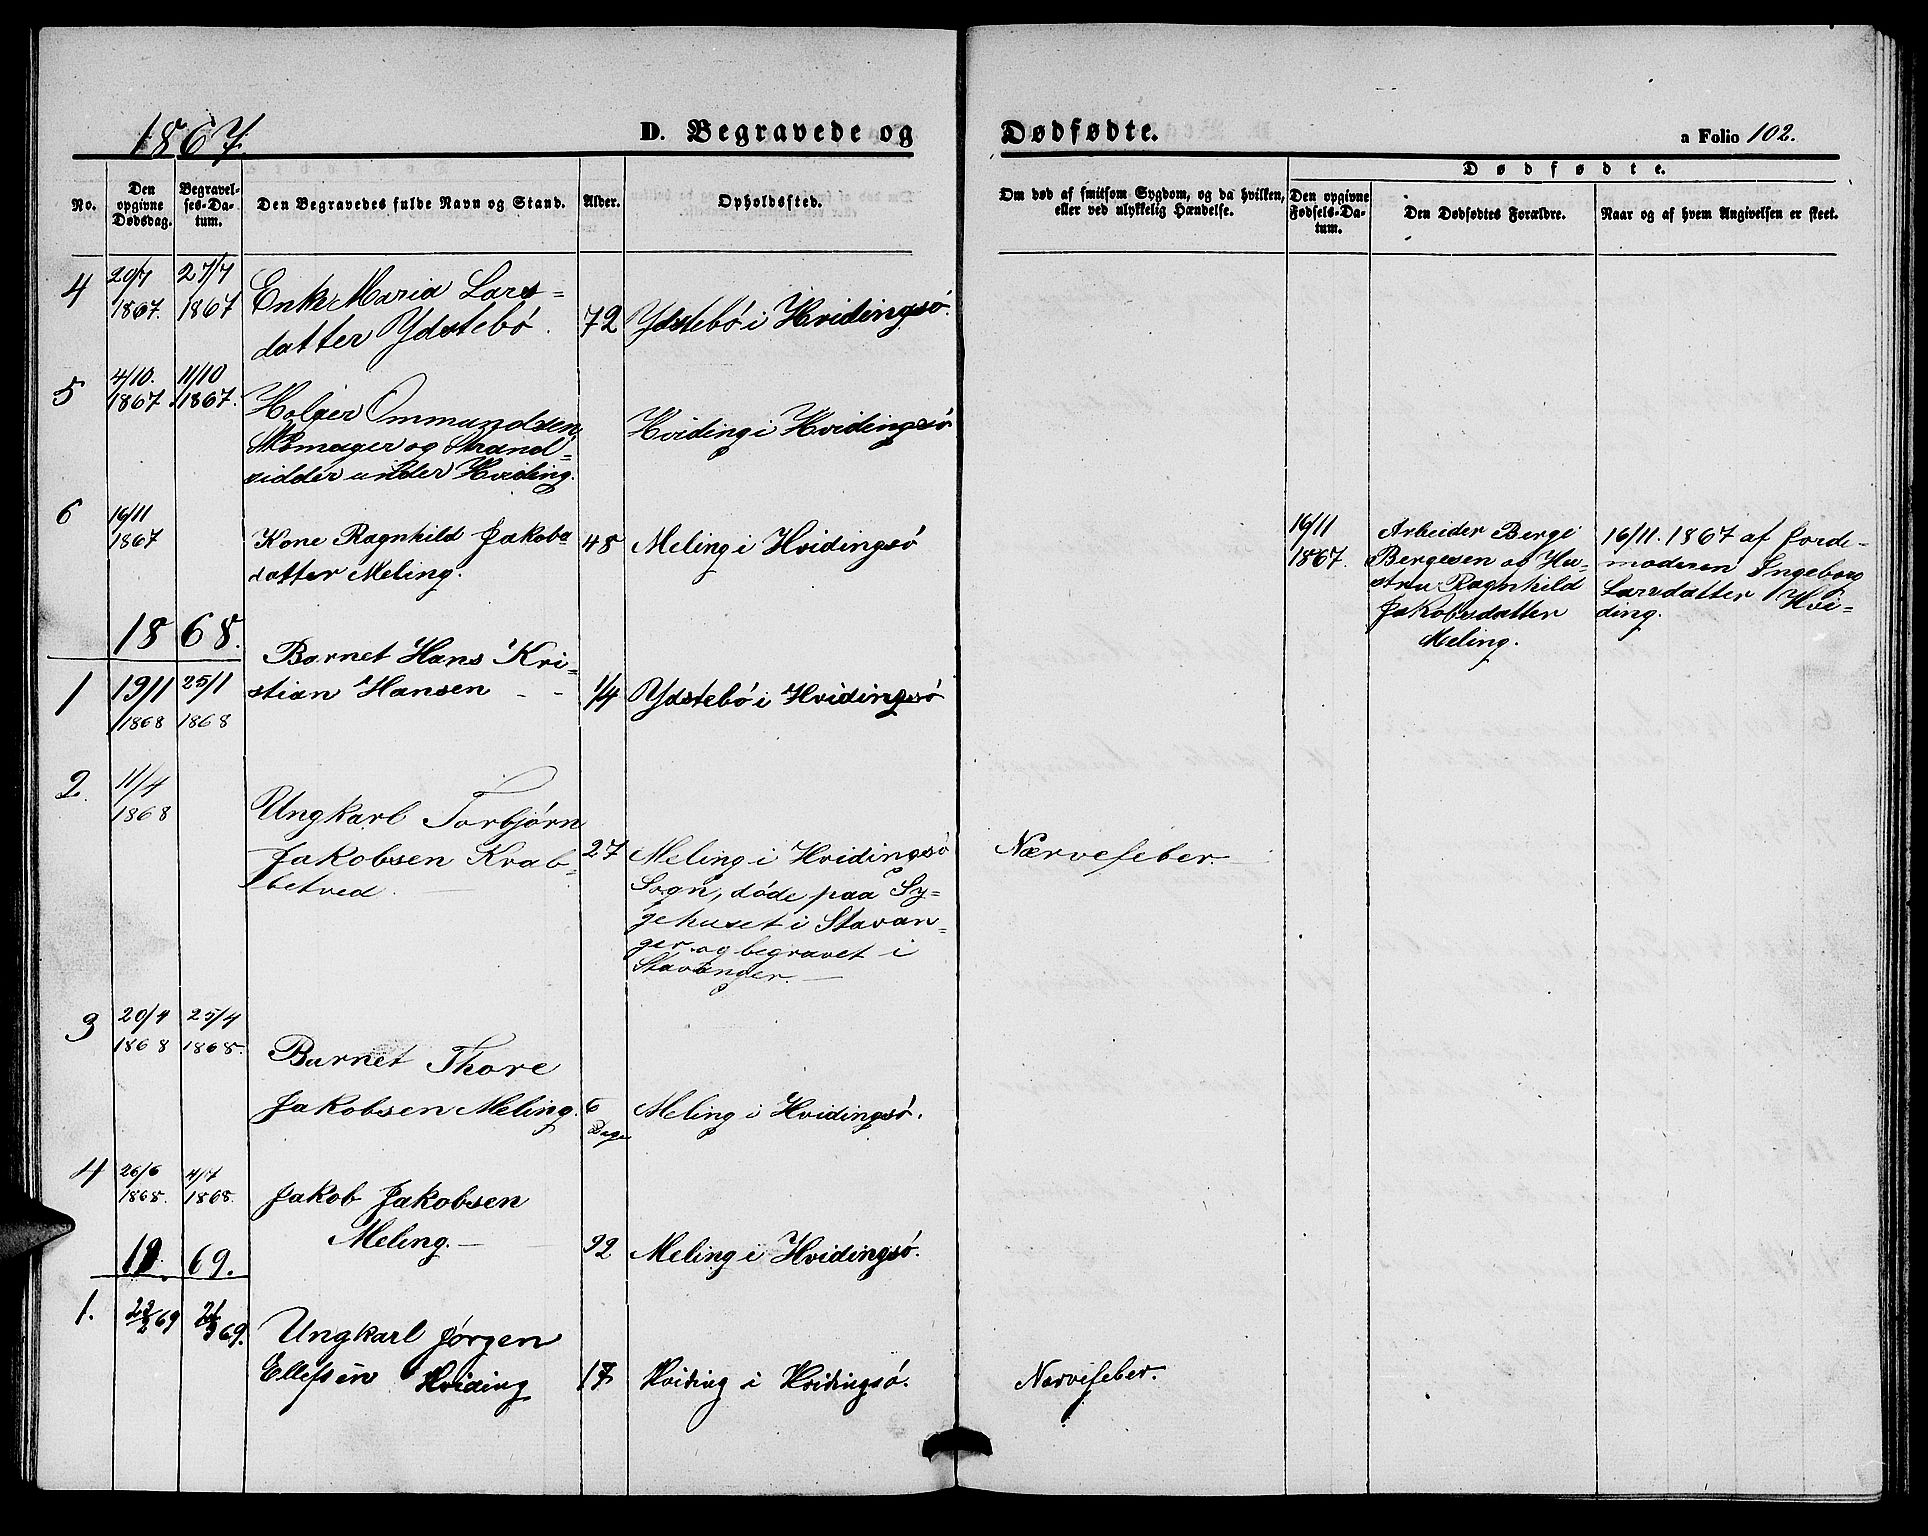 1867.
D. Begravede og
Dødfødte.
a Folio 102.
Dødfødte.
No.
Den
opgivne
Dødsdag.
Begravel-
ses-Da-
tum.
Den Begravedes fulde Navn og Stand.
Alder.
Opholdssted.
Om død af smitsom Sygdom, og da hvilken,
eller ved ulykkelig Hændelse.
Den opgivne
Fødsels-Da-
tum.
Den Dødfødtes Forældre.
Naar og af hvem Angivelsen er skeet.
4
20/7
1867.
27/7
1867
Enke Maria Lars-
datter Ydstebö.
72
Ydstebö i Hvidingsö.
5
4/10.
1867.
11/10
1867.
Holger Ommundsen,
Skomager og Strand-
sidder under Hviding.
Hviding i Hvidingsö
6
16/11
1867
Kone Ragnhild Jakobs-
datter Meling.
48
Meling i Hvidingsö
16/11
1867.
Arbeider Berge
Bergesen og Hu-
stru Ragnhild
Jakobsdatter
Meling.
16/11.1867 af Jorde-
moderen Ingeborg
Larsdatter Hvi-
ding.
1868.
1
19/1
1868
25/1
1868
Barnet Hans Kri-
stian Hansen
1/4
Ydstebö i Hvidingsö
2.
11/4
1868
Ungkarl Torbjörn
Jakobsen Krab-
betved.
27
Meling i Hvidingsö
Sogn, döde paa Sy-
gehuset i Stavan-
ger og begravet i
Stavanger.
Nærvefeber.
3
20/4
1868
25/4
1868.
Barnet Thore
Jakobsen Meling.
6
Dage
Meling i Hvidingsö.
4
26/6
1868.
4/7
1868.
Jakob Jakobsen
Meling.
22
Meling i Hvidingsö.
1869.
1.
69
69.
Ungkarl Jörgen
Ellefsen Hviding
17
Hviding i Hvidingsö.
Nervefeber.